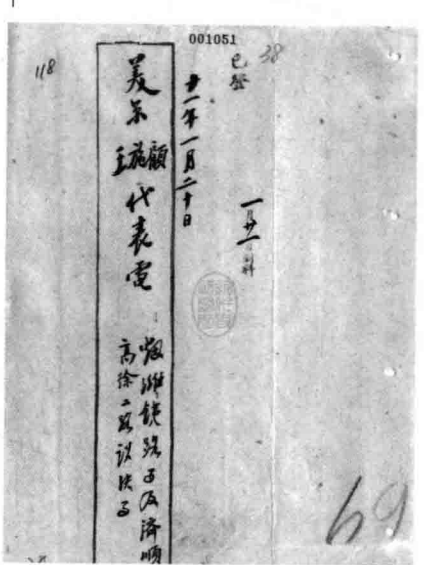 001051
38
已登
118
一月廿一日到
十一年一月二十日
美京
顧施王代表電
烟濰鐵路事及濟順
高徐二路議決事
69